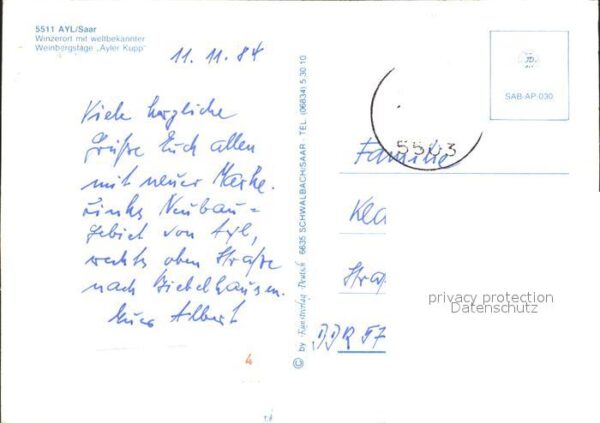 5511 AYL/Saar
Winzerort mit weltbekannter
Weinbergslage „Ayler Kupp"
11. 11. 84
Viele herzliche
Grüße Euch allen
mit neuer Marke.
Links Neubau=
gebiet von Ayl,
rechts oben Straße
nach Biebelhausen.
Euer Albert
4
© by Kunstverlag Deutsch 6635 SCHWALBACH/SAAR TEL. (06834) 5 30 10
SAB-AP-030
5503
Familie
Kla
Straß
privacy protection
Datenschutz
DDR 57